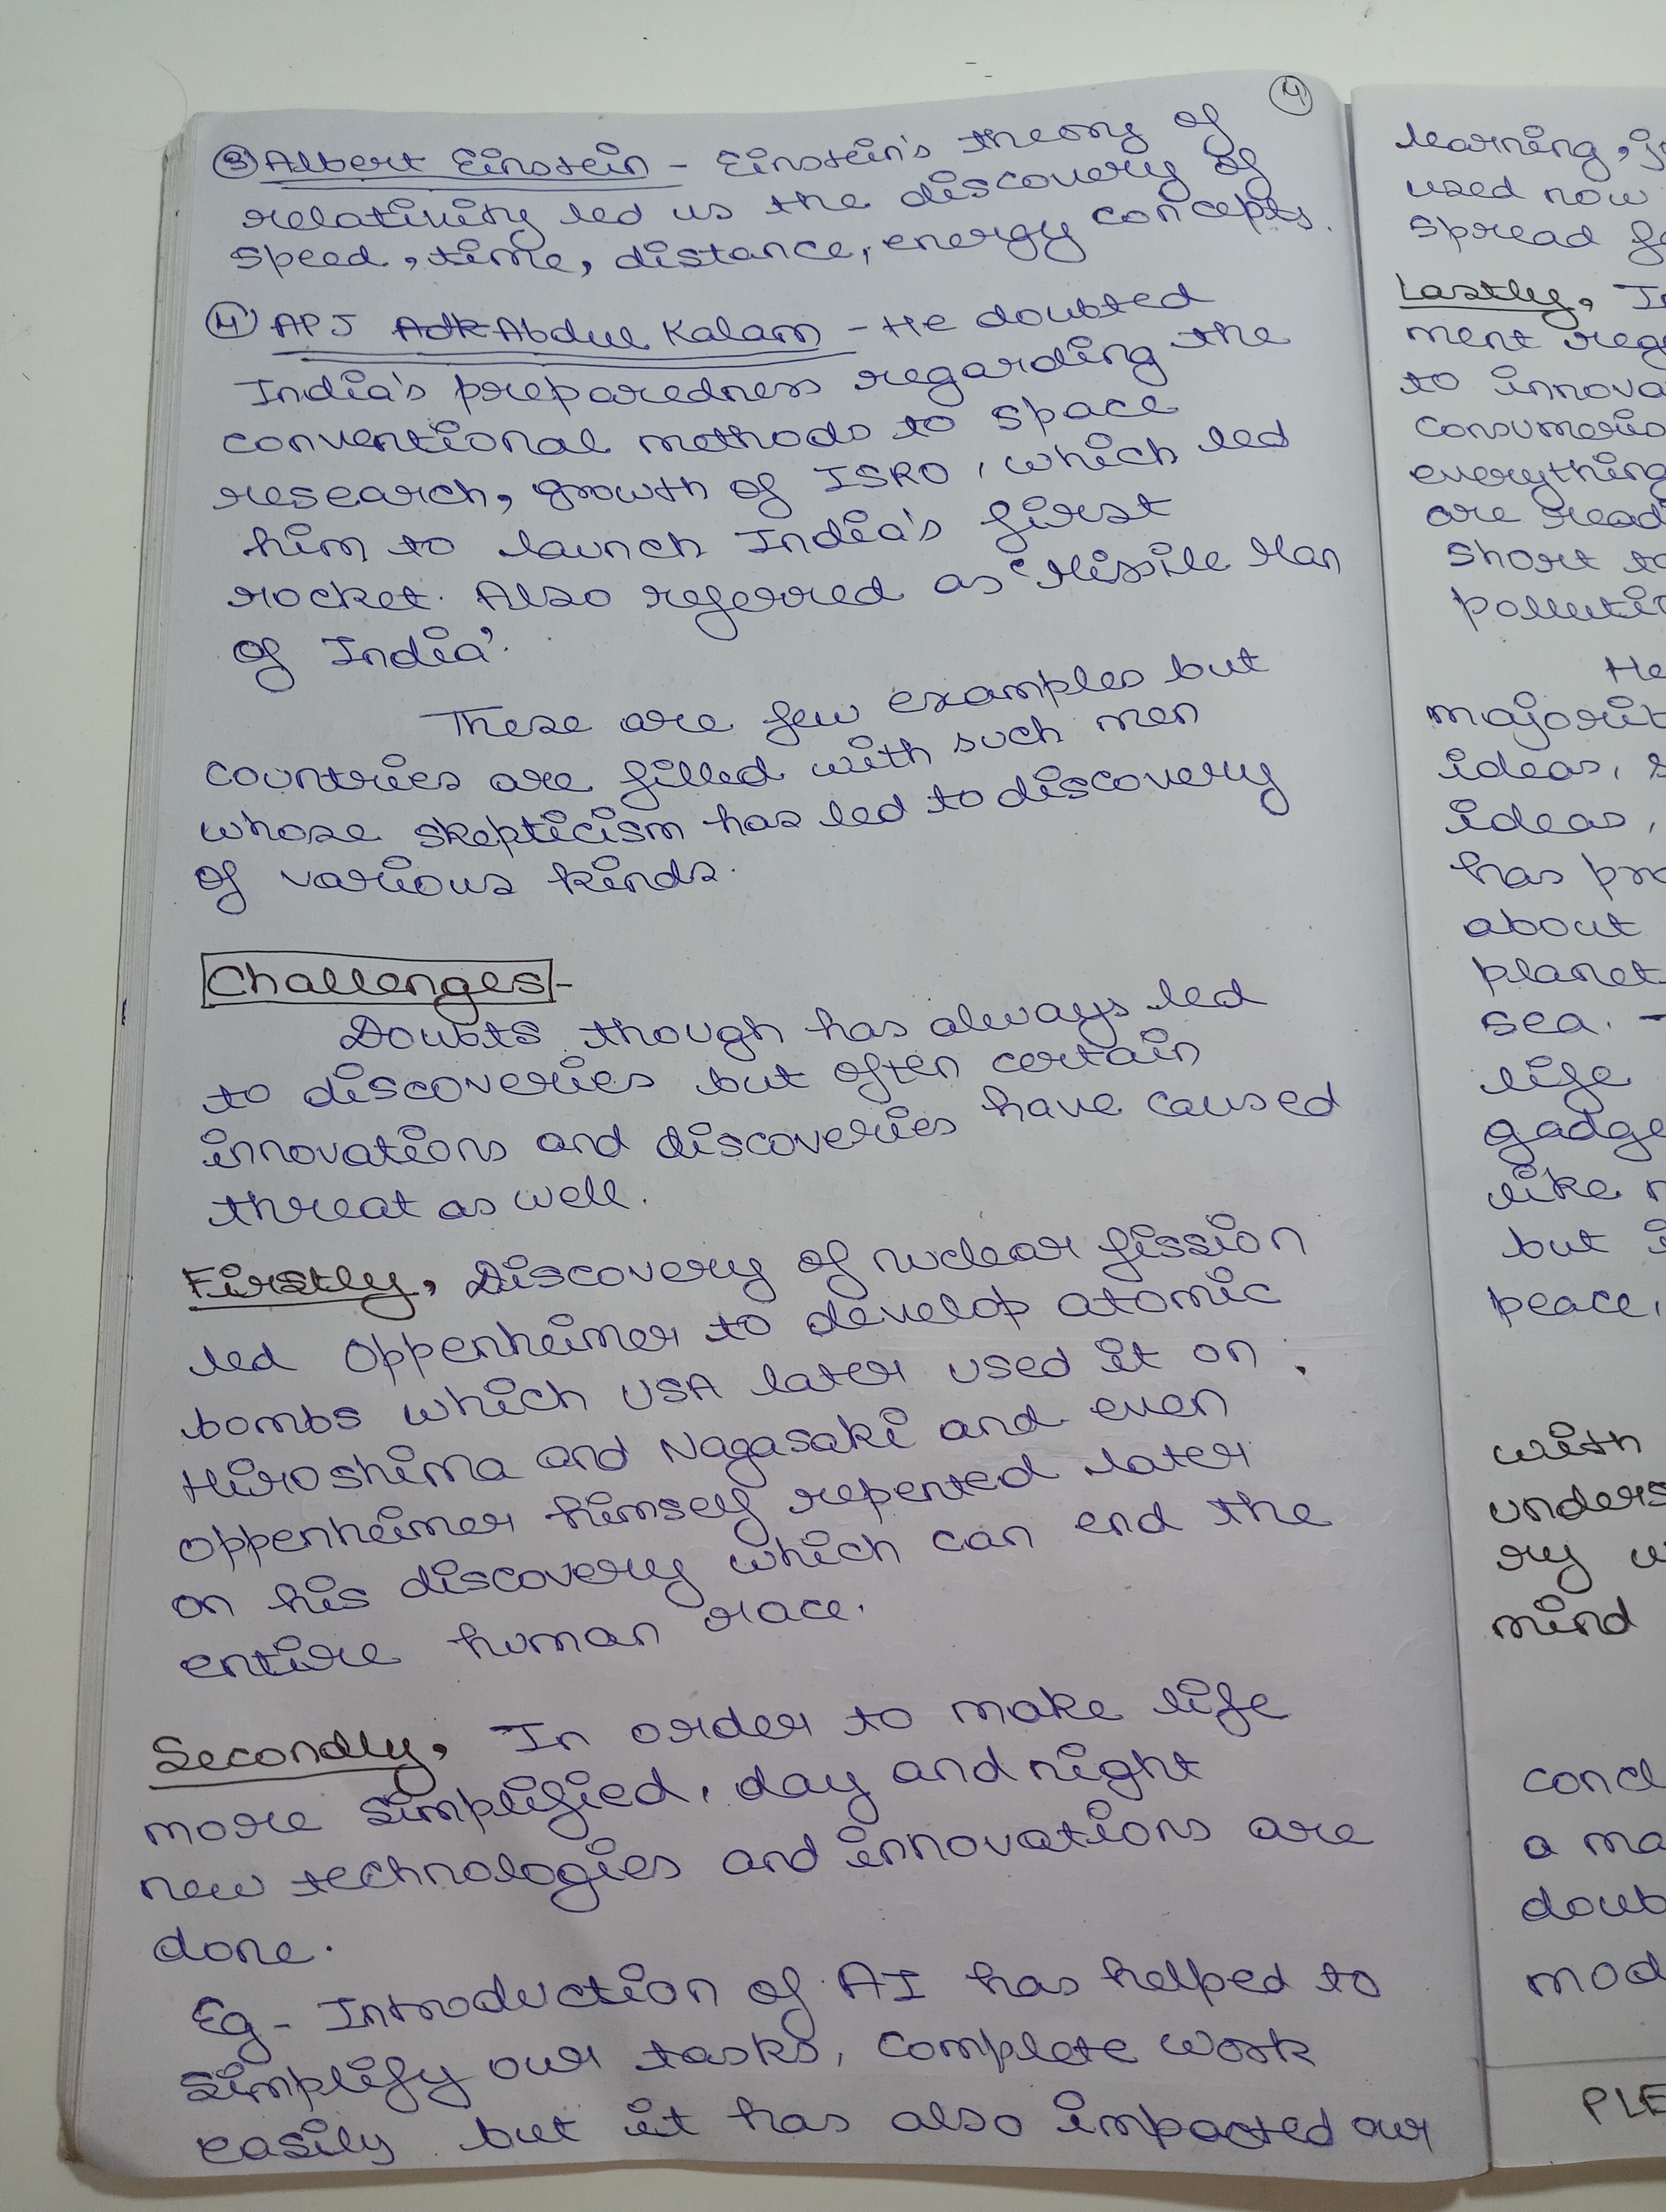 4
③ Albert Einstein - Einstein's theory of
relativity led us the discovery of
speed, time, distance, energy concepts.
④ APJ Adk Abdul Kalam - He doubted
India's preparedness regarding the
conventional methods to space
research, growth of ISRO, which led
him to launch India's first
rocket. Also referred as 'Missile Man
of India'.
These are few examples but
countries are filled with such men
whose skepticism has led to discovery
of various kinds.
Challenges -
Doubts though has always led
to discoveries but often certain
innovations and discoveries have caused
threat as well.
Firstly, Discovery of nuclear fission
led Oppenheimer to develop atomic
bombs which USA later used it on
Hiroshima and Nagasaki and even
Oppenheimer himself repented later
on his discovery which can end the
entire human race.
Secondly, In order to make life
more simplified, day and night
new technologies and innovations are
done.
Eg - Introduction of AI has helped to
simplify our tasks, complete work
easily but it has also impacted our
learning,
used now
spread
Lastly,
ment
to
are
short
ideas,
ideas,
has
about
planet
sea. -
life
like
but
peace,
with
mind
a